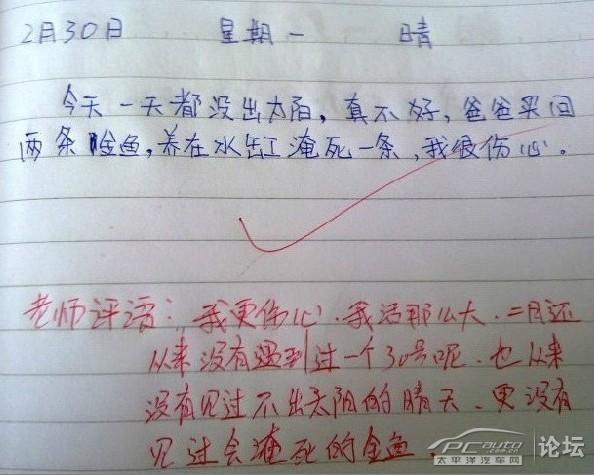 2月30日 星期一 晴
今天一天都没出太阳，真不好，爸爸买回
两条金鱼，养在水缸淹死一条，我很伤心。
老师评语：我更伤心．我活那么大．二月还
从来没有遇到过一个30号呢．也从来
没有见过不出太阳的晴天、更没有
见过会淹死的金鱼．
PCauto.com.cn 论坛
太平洋汽车网